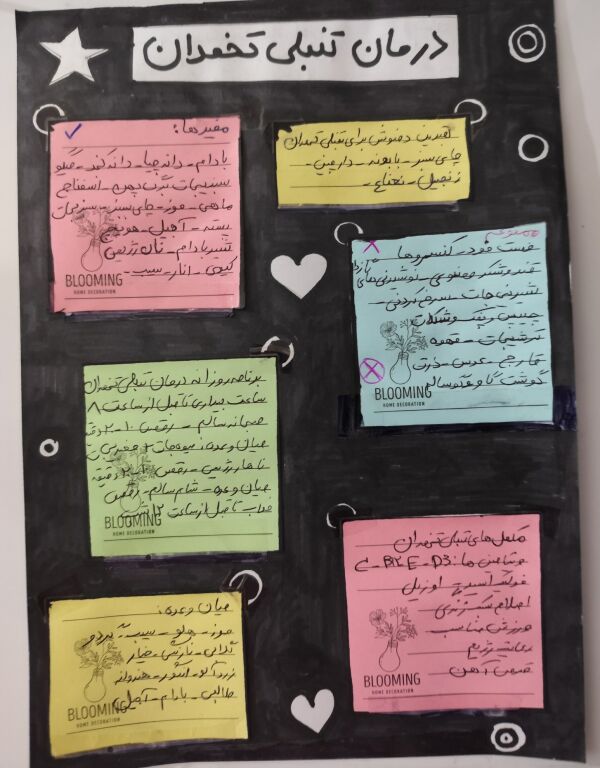 درمان تنبلی تخمدان
بهترین دمنوش برای تنبلی تخمدان
چای سبز - بابونه - دارچین -
زنجبیل - نعناع -
مفیدها:
بادام - دانه چیا - دانه کتان - میگو
سبزیجات برگ پهن - اسفناج
ماهی - موز - چای سبز - سبزیجات
پسته - آجیل - هویج
شیر بادام - نان رژیمی
کیوی - انار - سیب -
BLOOMING
HOME DECORATION
ممنوعه
فست فود - کنسروها
قند و شکر مصنوعی - نوشیدنی های
شیرینی جات - سرخ کردنی
چیپس و پفک و شکلات
ترشیجات - قهوه
قارچ - عدس - ذرت
گوشت گاو و گوساله
BLOOMING
HOME DECORATION
برنامه روزانه درمان تنبلی تخمدان
ساعت بیداری تا قبل از ساعت ۸
صبحانه سالم - رقص ۱۰ - ۲۰ دقیقه
میان وعده: میوه جات
ناهار رژیمی - رقص ۲۰ دقیقه
میان وعده - شام سالم - رقص
خواب تا قبل از ساعت ۱۲ شب
BLOOMING
HOME DECORATION
مکمل های تنبلی تخمدان
ویتامین ها: C - B12 E - D3
فولیک اسید
اصلاح سبک زندگی
ورزش مناسب
رعایت رژیم
قرص آهن
BLOOMING
HOME DECORATION
میان وعده:
موز - هلو - سیب -
گلابی - نارنگی - خیار
زردآلو - انگور - هندوانه
طالبی - بادام - آجیل
BLOOMING
HOME DECORATION